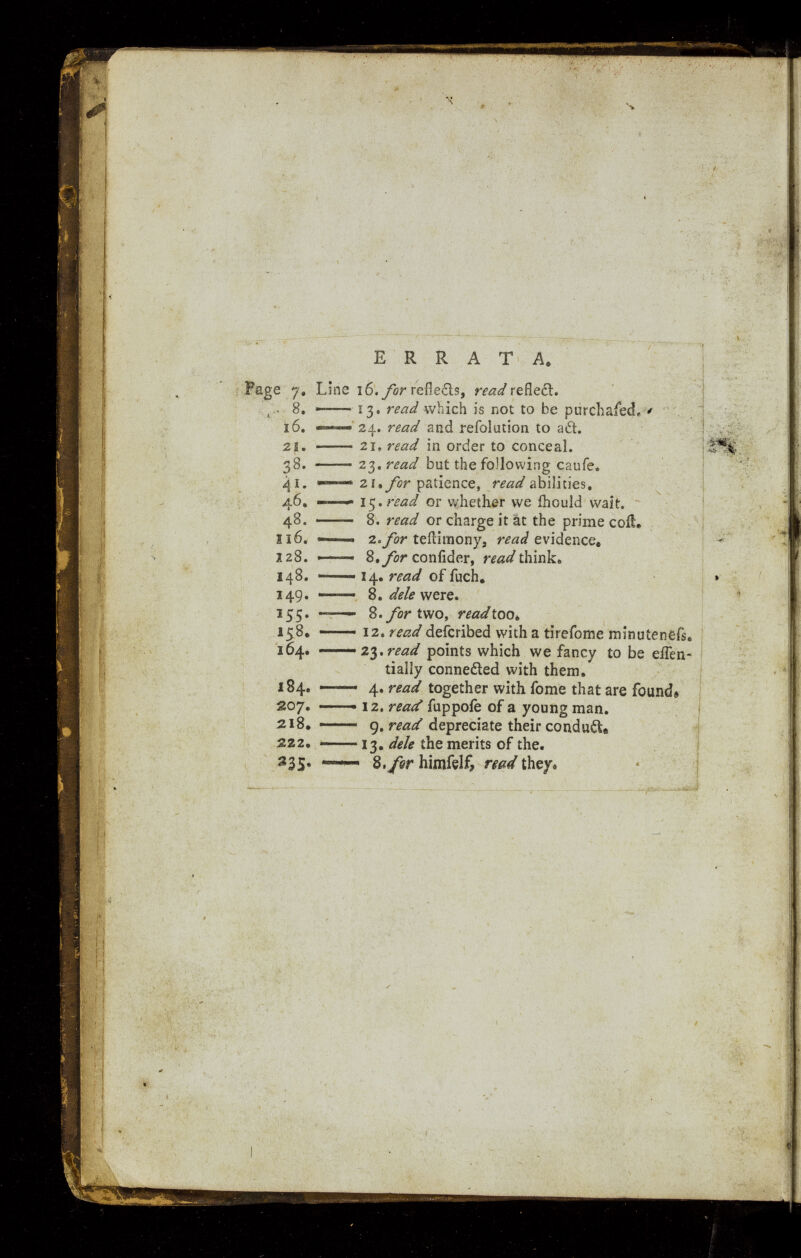 ERRATA.
Page 7. Line 16. for reflects, read reflect.
8. —— 13. read which is not to be purchaſed.
16. —— 24. read and reſolution to act.
21. —— 21. read in order to conceal.
38. —— 23. read but the following cauſe.
41. —— 21. for patience, read abilities.
46. —— 15. read or whether we ſhould wait.
48. —— 8. read or charge it at the prime coſt.
116. —— 2. for teſtimony, read evidence.
128. —— 8. for conſider, read think.
148. —— 14. read of ſuch.
149. —— 8. dele were.
155. —— 8. for two, read too.
158. —— 12. read deſcribed with a tireſome minuteneſs.
164. —— 23. read points which we fancy to be eſſen-
tially connected with them.
184. —— 4. read together with ſome that are found.
207. —— 12. read ſuppoſe of a young man.
218. —— 9. read depreciate their conduct.
222. —— 13. dele the merits of the.
235. —— 8. for himſelf, read they.